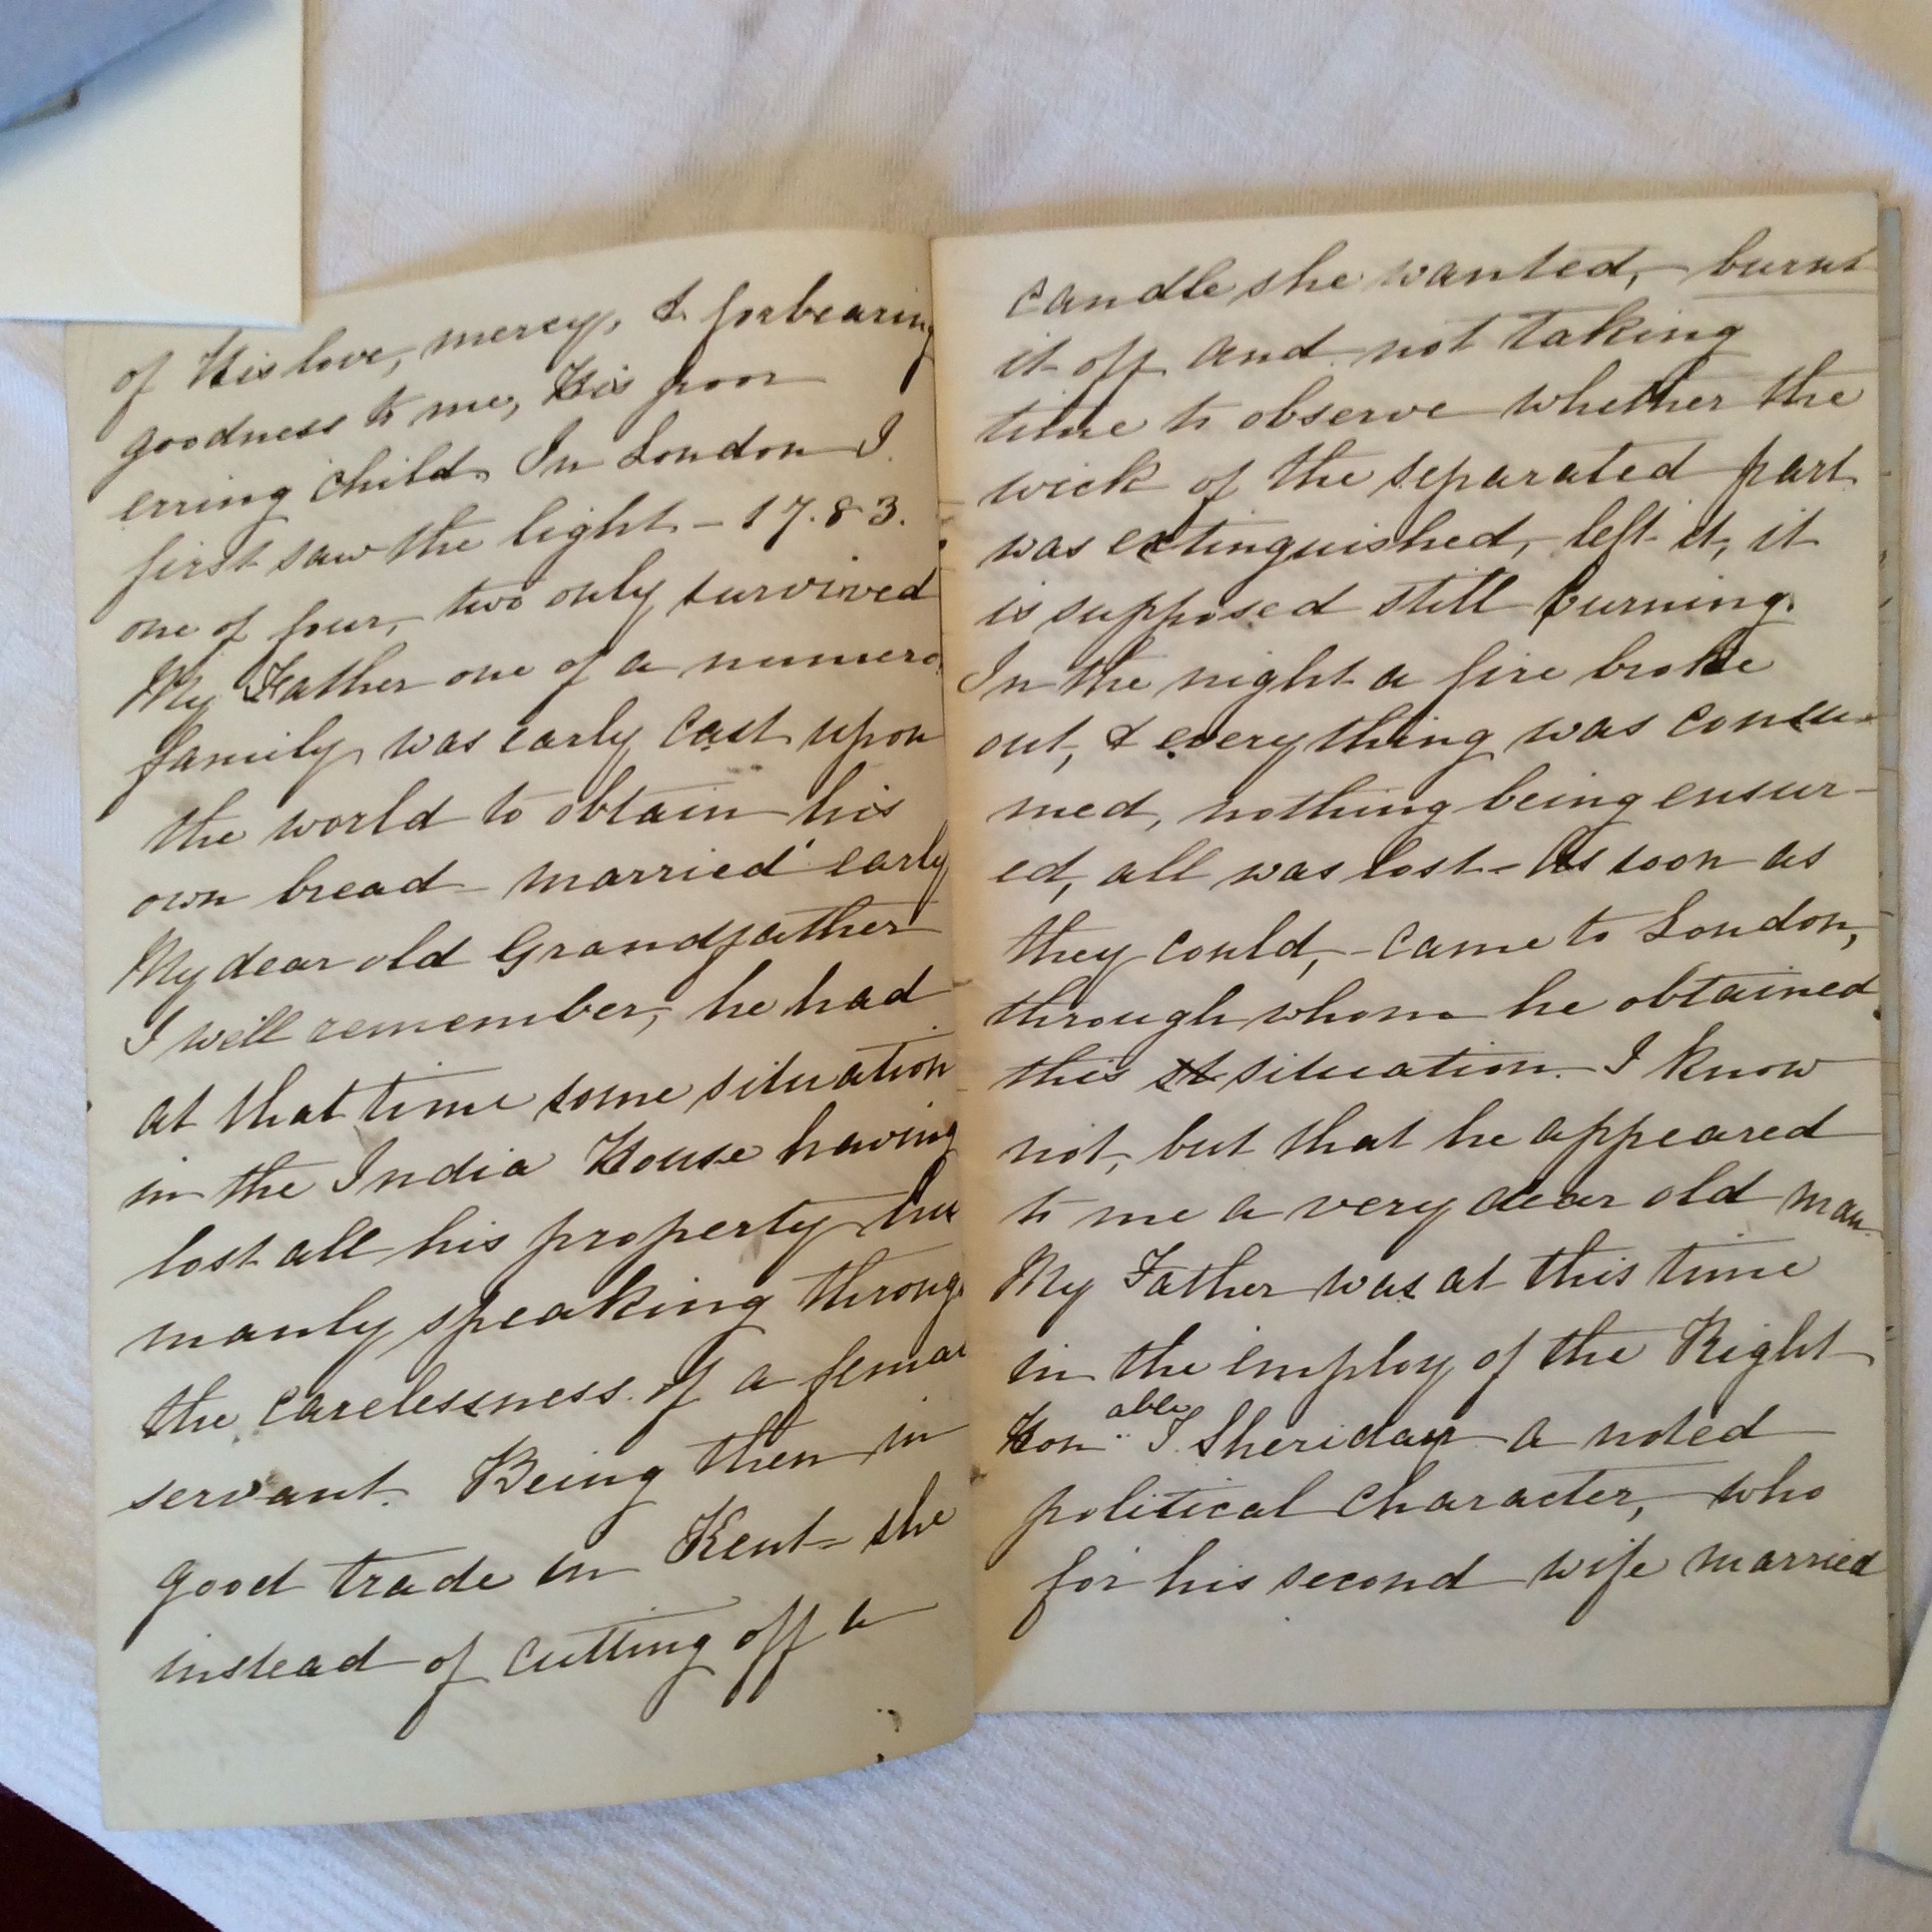 of His love, mercy, & forbearing
goodness to me, His poor
erring child. In London I
first saw the light - 1783.
one of four, two only survived
My Father one of a numero
family was early cast upon
the world to obtain his
own bread - married early
My dear old Grandfather
I well remember, he had
at that time some situation
in the India House having
lost all his property hu
manly speaking throug
the carelessness of a femal
servant. Being then in
good trade in Kent - she
instead of cutting off a
candle she wanted, burnt
it off and not taking
time to observe whether the
wick of the separated part
was extinguished, left it, it
is supposed still burning.
In the night a fire broke
out, & everything was consu-
med, nothing being ensur-
ed, all was lost - As soon as
they could, - came to London,
through whom he obtained
this st situation. I know
not, but that he appeared
to me a very dear old man.
My Father was at this time
in the employ of the Right
Honable I. Sheridan a noted
political character, who
for his second wife married